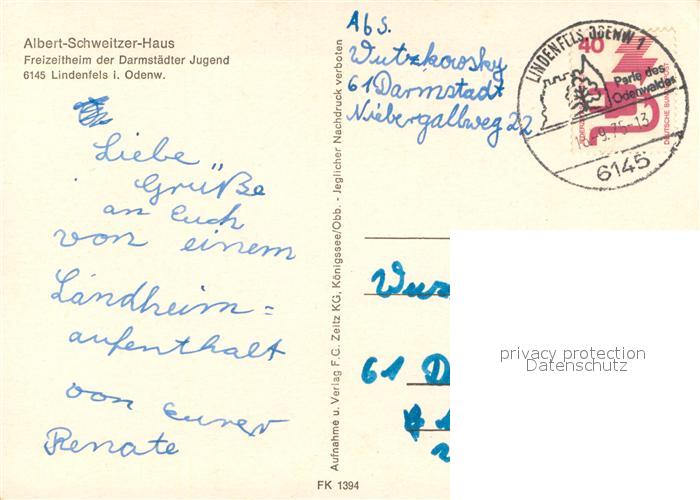 Albert-Schweitzer-Haus
Freizeitheim der Darmstädter Jugend
6145 Lindenfels i. Odenw.
Liebe
Grüße
an Euch
von einem
Landheim=
aufenthalt
von Eurer
Renate
Aufnahme u. Verlag F.G. Zeitz KG, Königssee/Obb. - Jeglicher Nachdruck verboten
FK 1394
Abs.
Wutzkowsky
61 Darmstadt
Niebergallweg 22
LINDENFELS, ODENW 1
Perle des
Odenwaldes
9.75-13
6145
40
DEUTSCHE BUNDESPOST
61 D
privacy protection
Datenschutz